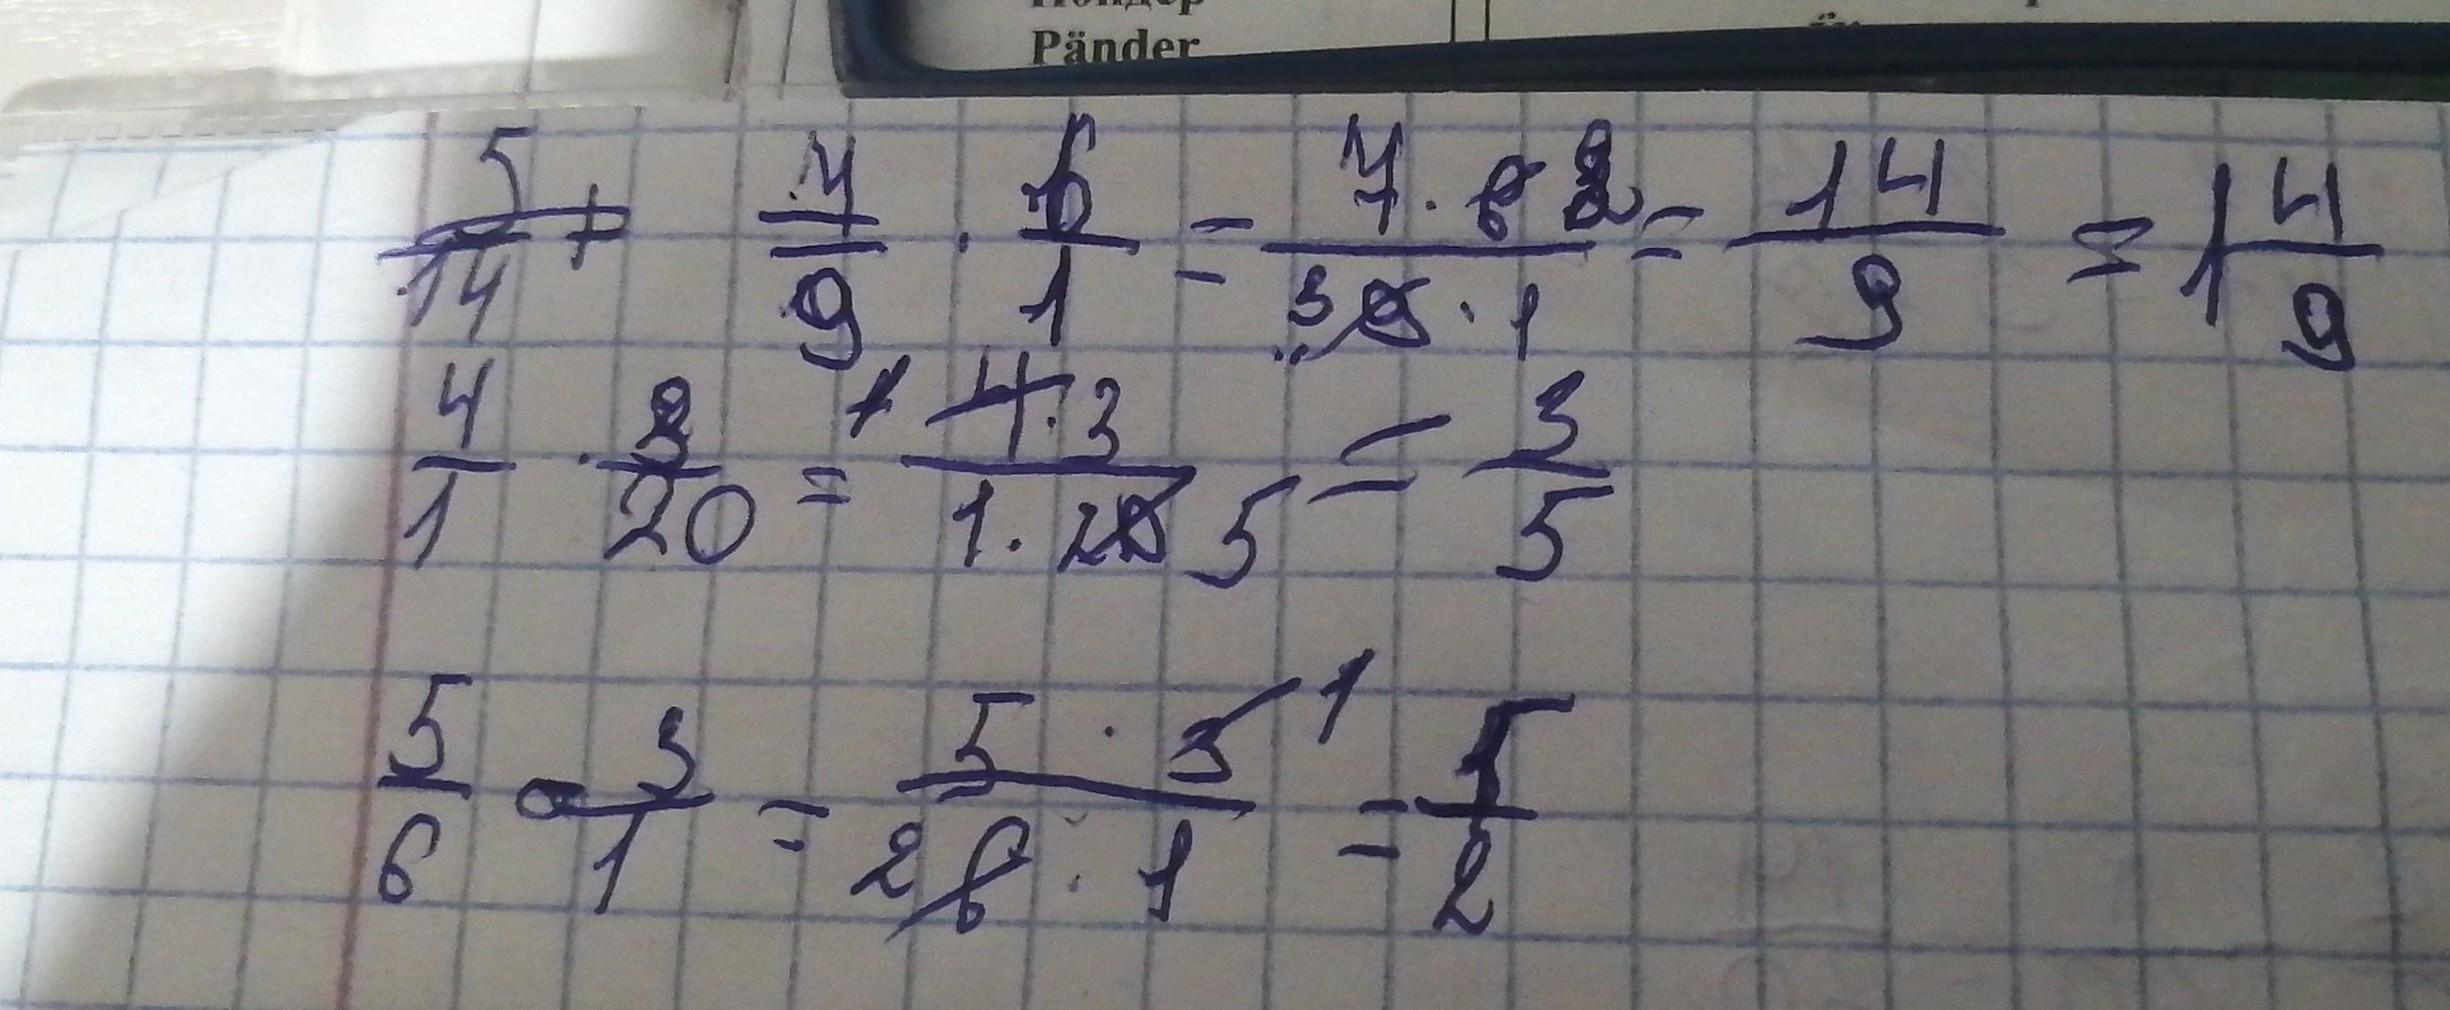 Pänder
5/14 + 7/9 · 6/1 = 7 · 6 2 / 3 9 · 1 = 14/9 = 1 4/9
4/1 · 3/20 = 1 4 · 3 / 1 · 20 5 = 3/5
5/6 · 3/1 = 5 · 3 1 / 2 6 · 1 = 5/2